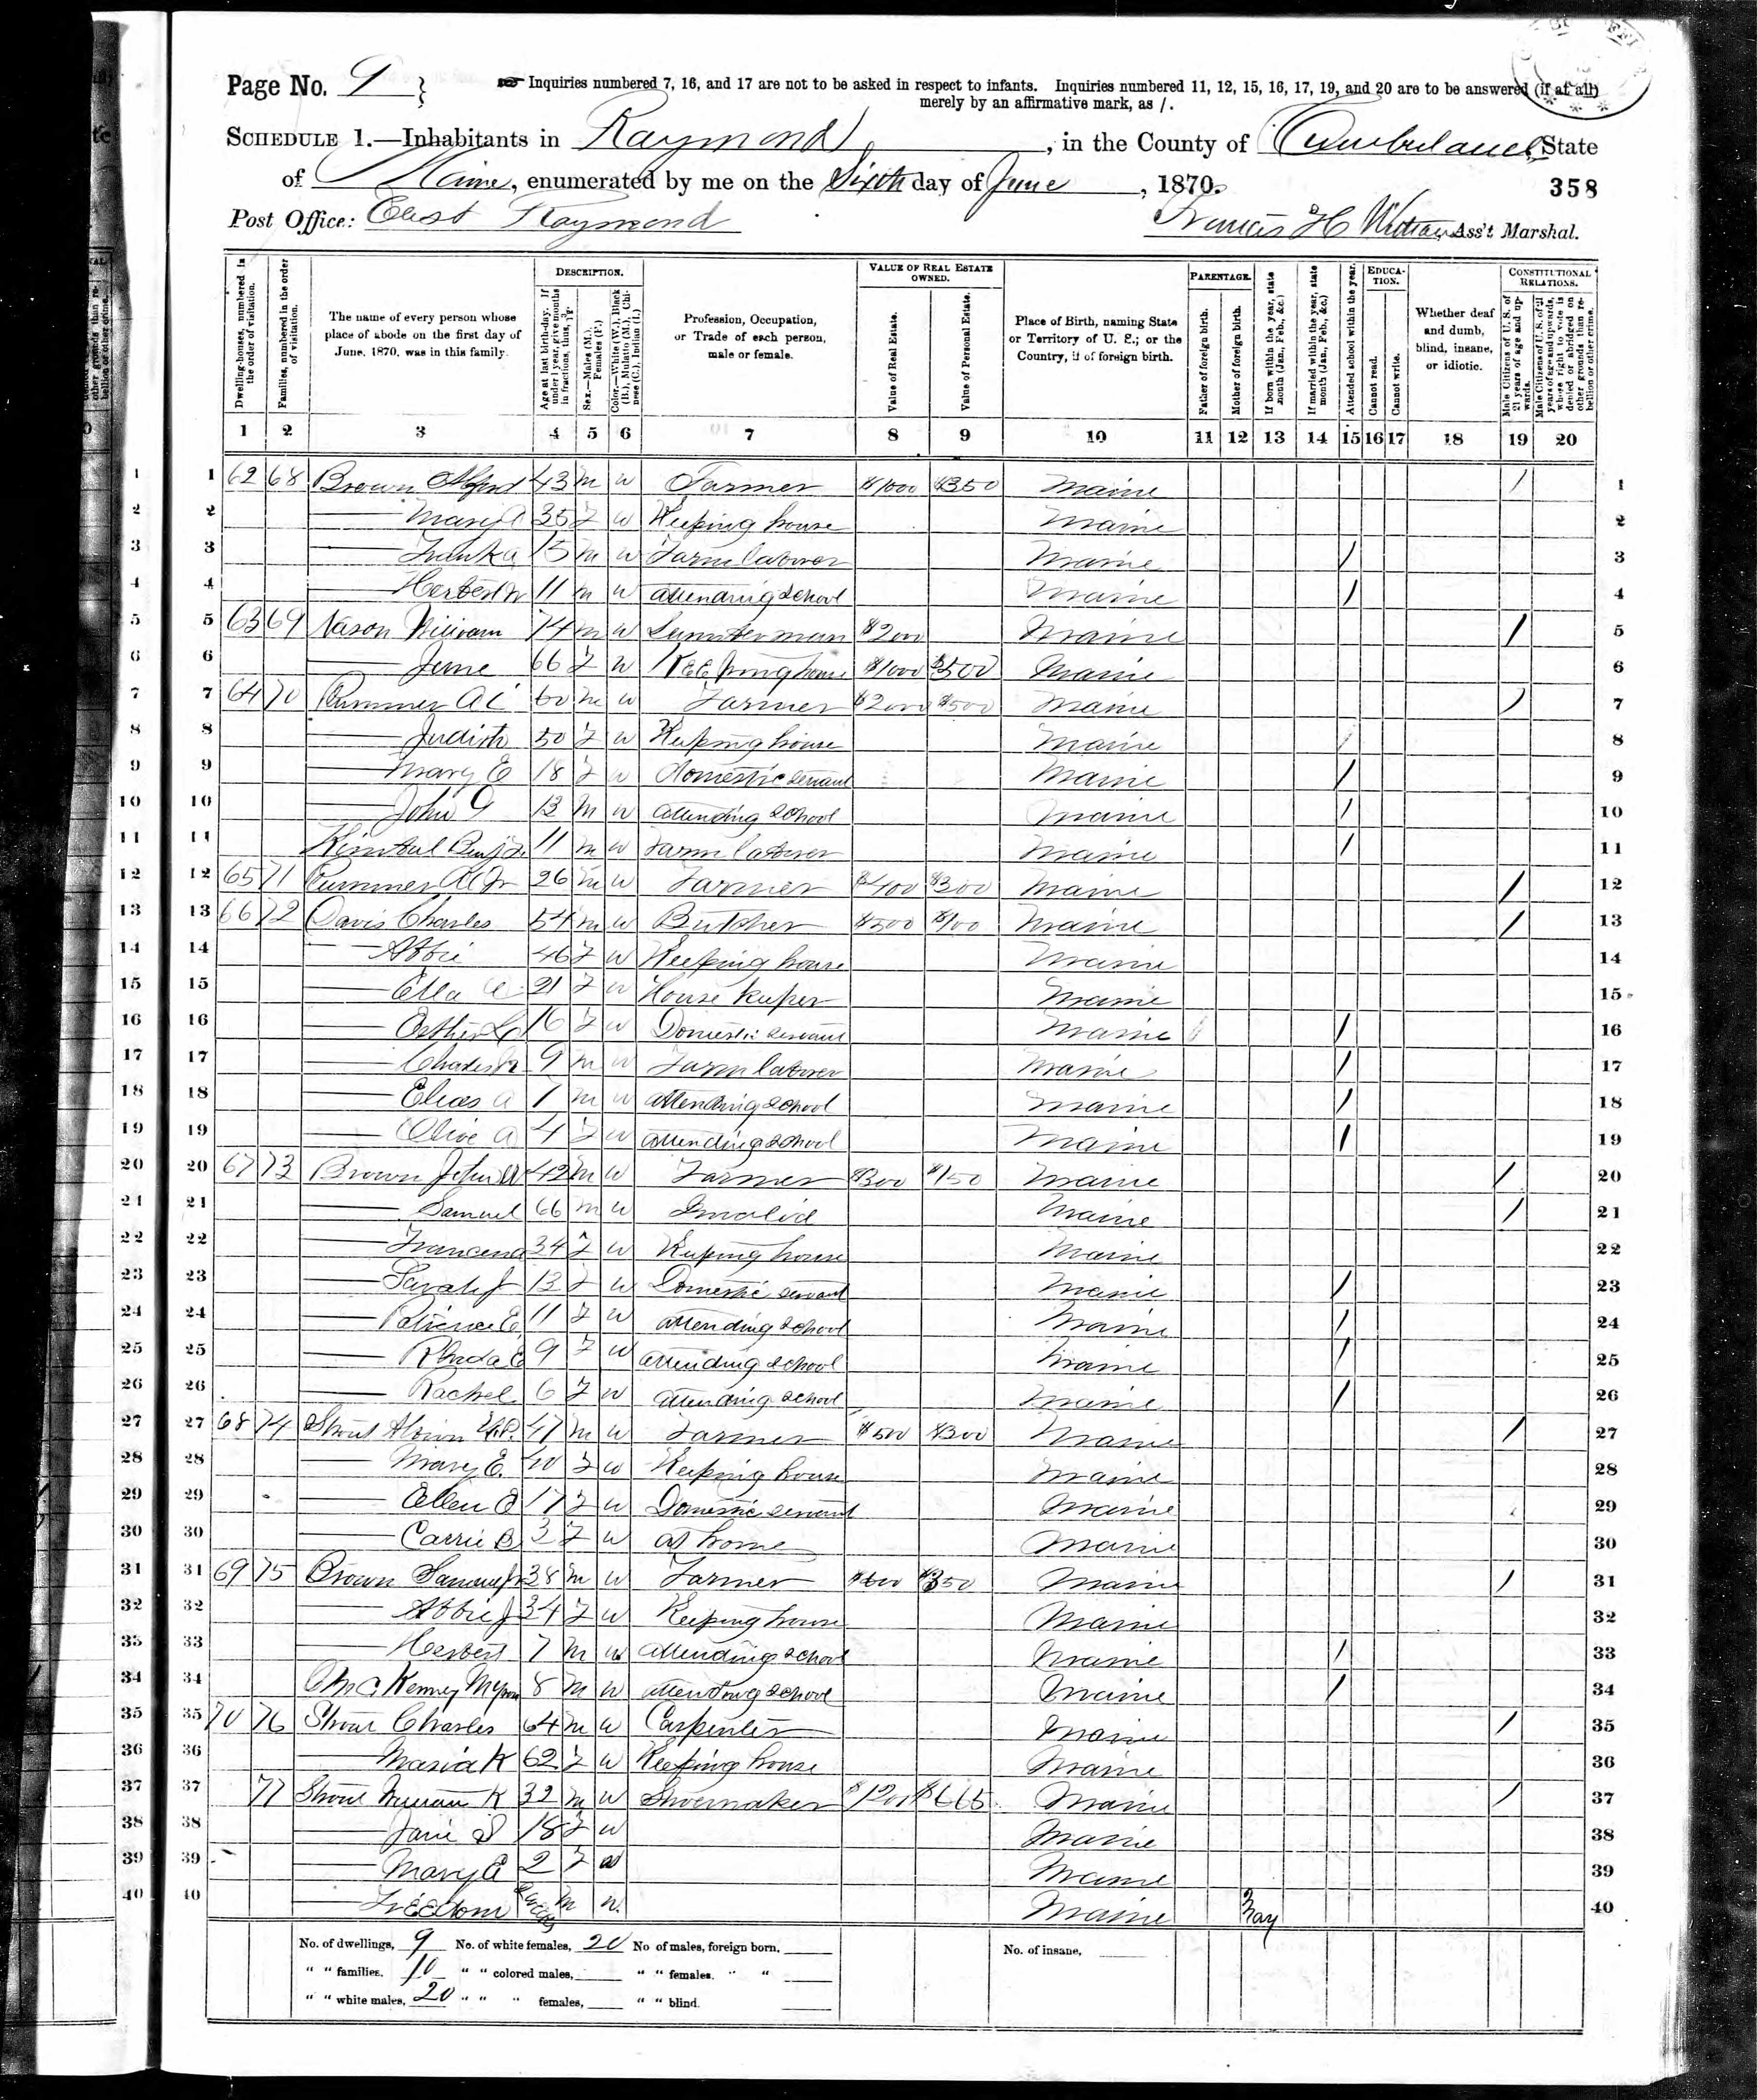 Page No. 9 } Inquiries numbered 7, 16, and 17 are not to be asked in respect to infants. Inquiries numbered 11, 12, 15, 16, 17, 19, and 20 are to be answered (if at all)
merely by an affirmative mark, as /.
SCHEDULE 1.—Inhabitants in Raymond, in the County of Cumberland, State
of Maine, enumerated by me on the Sixth day of June, 1870. 358
Post Office: East Raymond Francis H Ass't Marshal.
Dwelling-houses, numbered in the order of visitation.
Families, numbered in the order of visitation.
The name of every person whose place of abode on the first day of June, 1870, was in this family.
DESCRIPTION.
Age at last birth-day. If under 1 year, give months in fractions, thus,
Sex.—Males (M.), Females (F.)
Color.—White (W.), Black (B.), Mulatto (M.), Chinese (C.), Indian (I.)
Profession, Occupation, or Trade of each person, male or female.
VALUE OF REAL ESTATE OWNED.
Value of Real Estate.
Value of Personal Estate.
Place of Birth, naming State or Territory of U. S.; or the Country, if of foreign birth.
PARENTAGE.
Father of foreign birth.
Mother of foreign birth.
If born within the year, state month (Jan., Feb., &c.)
If married within the year, state month (Jan., Feb., &c.)
Attended school within the year.
EDUCATION.
Cannot read.
Cannot write.
Whether deaf and dumb, blind, insane, or idiotic.
CONSTITUTIONAL RELATIONS.
Male Citizens of U. S. of 21 years of age and upwards.
Male Citizens of U. S. of 21 years of age and upwards, whose right to vote is denied or abridged on other grounds than rebellion or other crime.
1 2 3 4 5 6 7 8 9 10 11 12 13 14 15 16 17 18 19 20
1 62 68 Brown 43 m w Farmer $1000 $350 Maine / 1
2 Mary 35 F w Keeping house Maine 2
3 Frank A 15 m w Farm laborer Maine / 3
4 Herbert 11 m w attending school Maine / 4
5 63 69 Nason William 74 m w Lumberman $200 Maine / 5
6 Jane 66 F w Keeping house $1000 $500 Maine 6
7 64 70 A C 60 m w Farmer $2000 $500 Maine / 7
8 Judith 50 F w Keeping house Maine 8
9 Mary E 18 F w domestic servant Maine / 9
10 John G 13 m w attending school Maine / 10
11 Kimbal 11 m w Farm laborer Maine / 11
12 65 71 Jr 26 m w Farmer $400 $300 Maine / 12
13 66 72 Davis Charles 54 m w Butcher $500 $100 Maine / 13
14 Abbie 46 F w Keeping house Maine 14
15 Ella 21 F w House keeper Maine 15
16 16 F w Domestic servant Maine / 16
17 Charles 9 m w Farm laborer Maine / 17
18 Elias A 7 m w attending school Maine / 18
19 Olive A 4 F w attending school Maine / 19
20 67 73 Brown John 42 m w Farmer $300 $150 Maine / 20
21 Samuel 66 m w Invalid Maine / 21
22 Francena 34 F w Keeping house Maine 22
23 Sarah J 13 F w Domestic servant Maine / 23
24 Patience E 11 F w attending school Maine / 24
25 Rhoda E 9 F w attending school Maine / 25
26 Rachel 6 F w attending school Maine / 26
27 68 74 Strout 47 m w Farmer $500 $300 Maine / 27
28 Mary E. 40 F w Keeping house Maine 28
29 Ellen 17 F w Domestic servant Maine 29
30 Carrie B 3 F w at home Maine 30
31 69 75 Brown Samuel Jr 38 m w Farmer $350 Maine / 31
32 Abbie J 34 F w Keeping house Maine 32
33 Herbert 7 m w attending school Maine / 33
34 Kenney 8 m w attending school Maine / 34
35 70 76 Strout Charles 64 m w Carpenter Maine / 35
36 Maria K 62 F w Keeping house Maine 36
37 77 Strout William K 32 m w Shoemaker $1200 Maine / 37
38 18 F w Maine 38
39 Mary E 2 F w Maine 39
40 Freedom m w. Maine May 40
No. of dwellings, 9 No. of white females, 20 No of males, foreign born, No. of insane,
" " families. 10 " " colored males, " " females. " "
" " white males, 20 " " " females, " " blind.